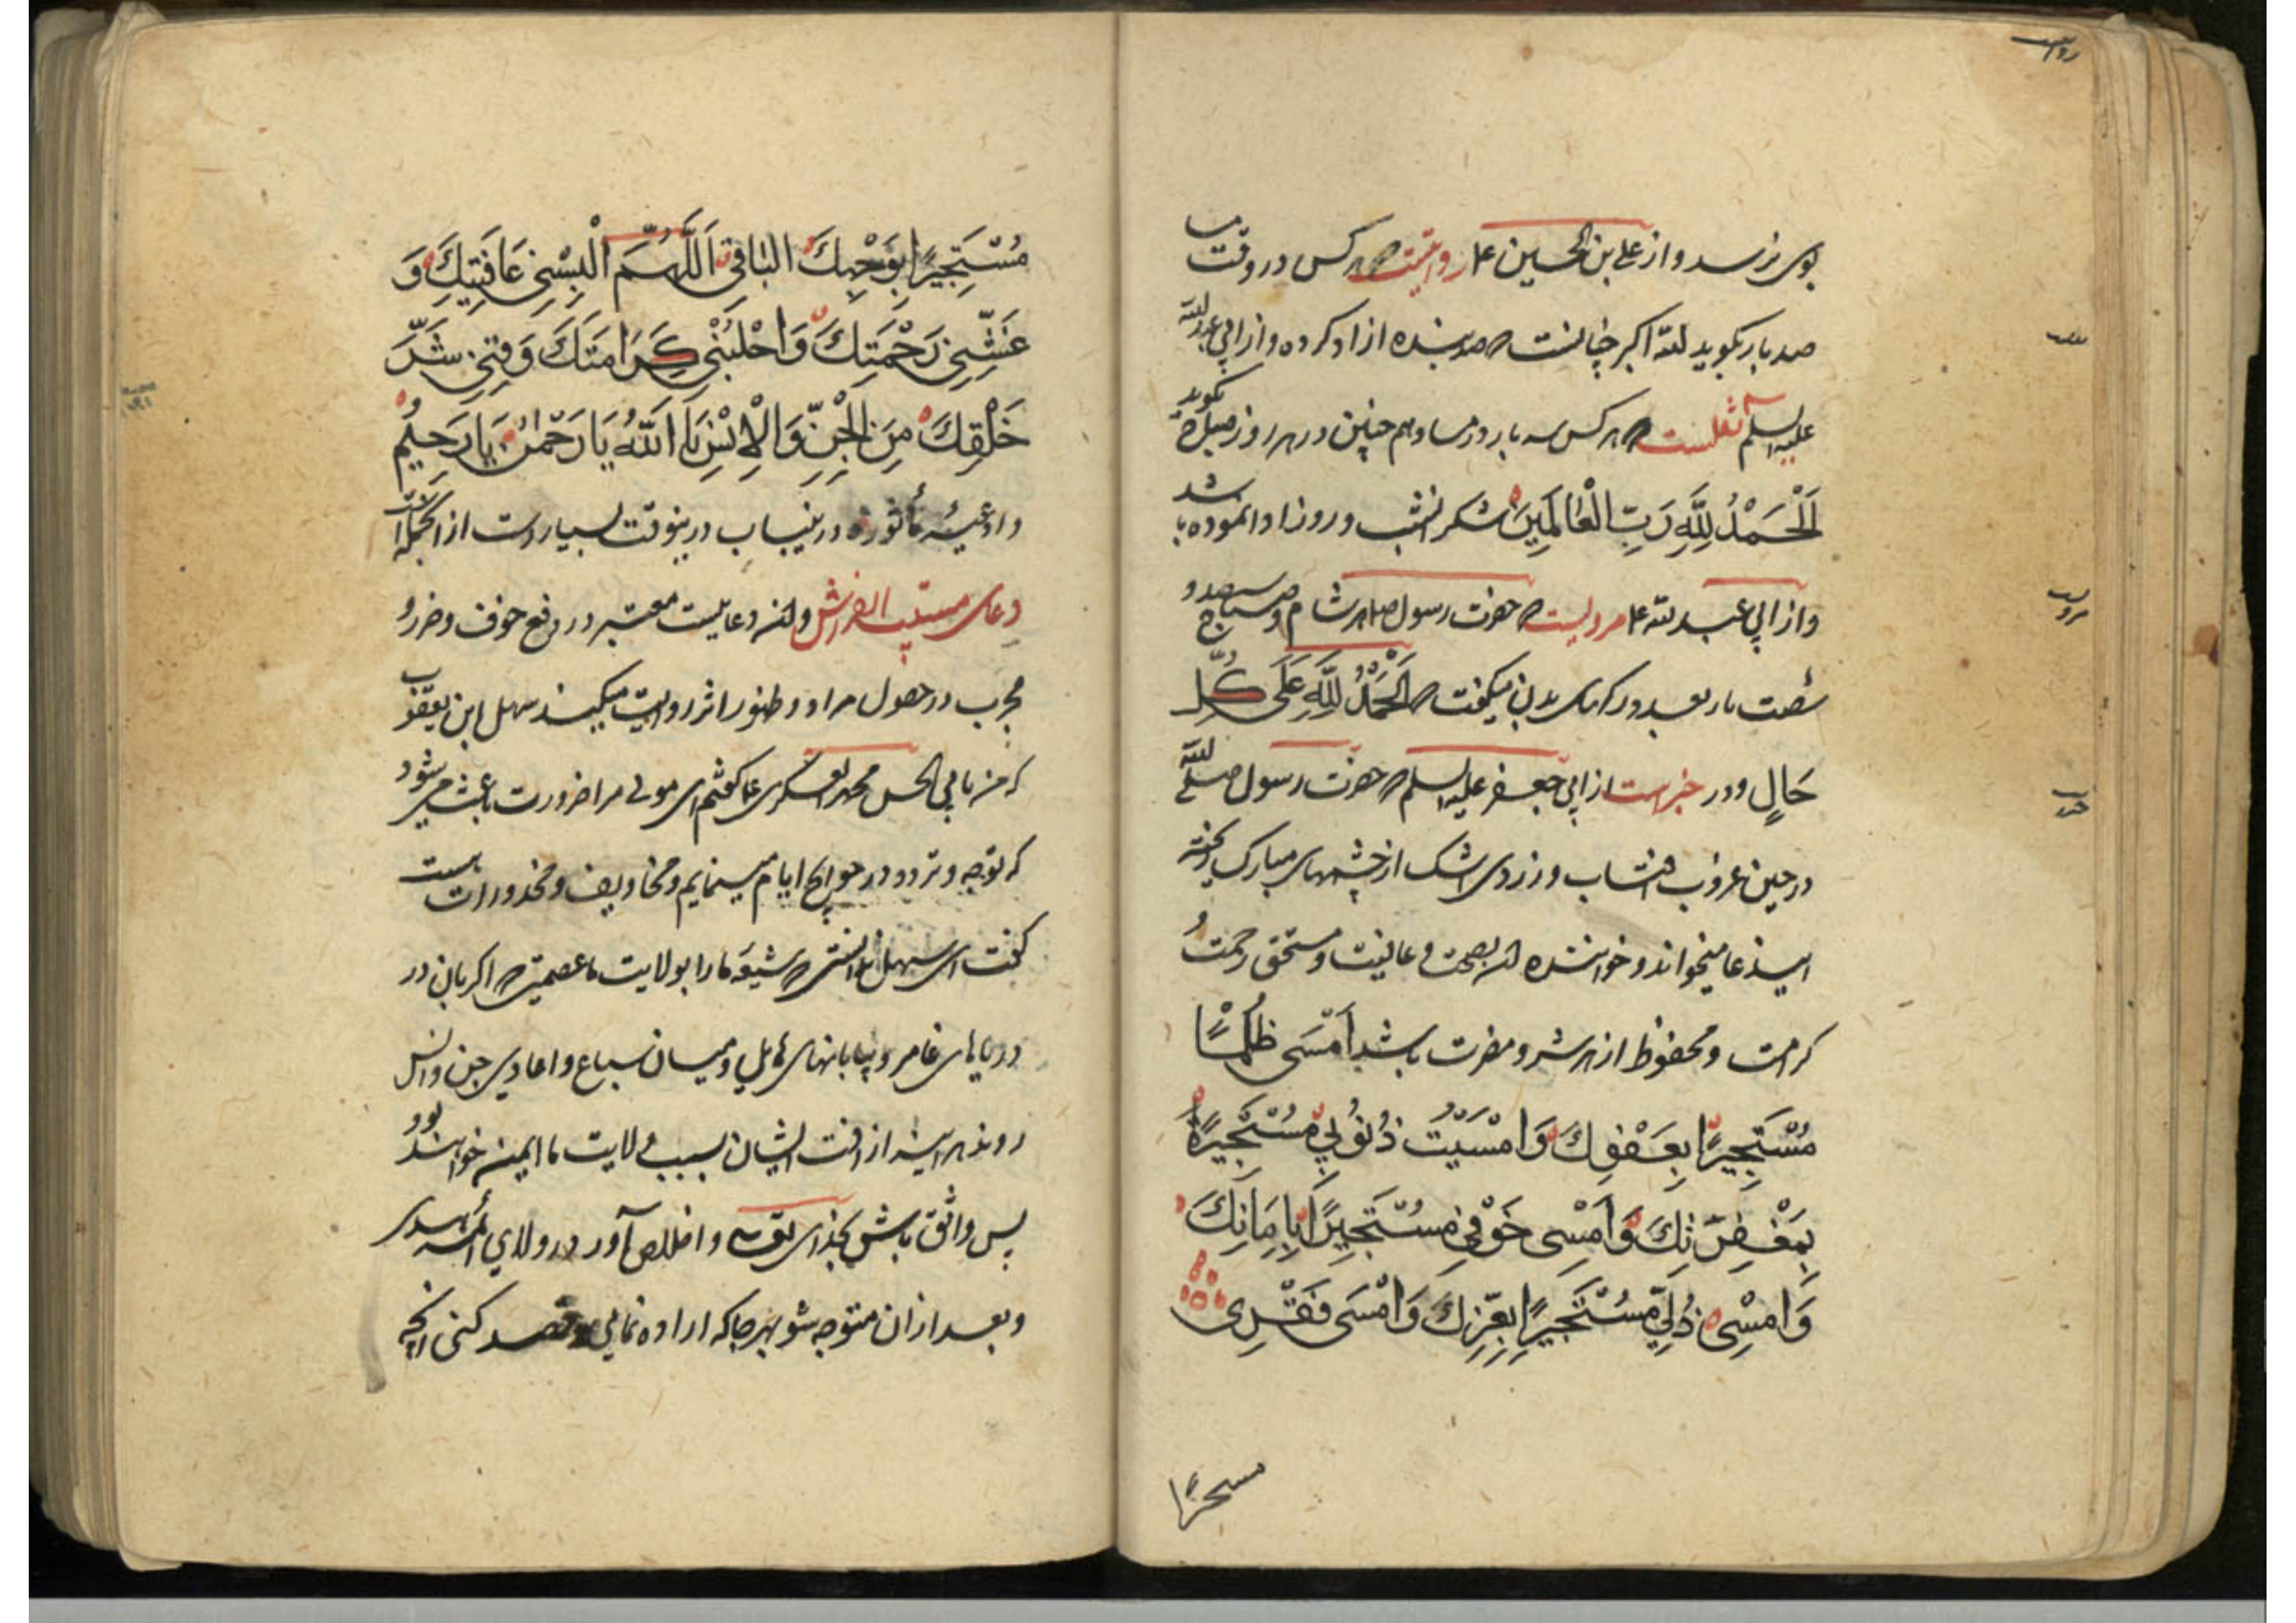 بوی نرسد و از علی بن الحسین ع روایتست که هر کس در وقت مسا
صد بار بگوید الله اکبر چنانست که صد بنده ازاد کرده و از ابی عبد الله
علیه السلم نقلست که هر کس سه بار در مسا و هم چنین در هر روز بگوید
اَلْحَمْدُ لِلَّهِ رَبِّ الْعَالَمِينَ شکر انشب و روز ادا نموده باشد
و از ابی عبد الله ع مرویست که حضرت رسول ص هر شام و صباح سیصد و
شصت بار بعدد رکهای بدن میکفت که اَلْحَمْدُ لِلَّهِ عَلَى كُلِّ
حَالٍ و در خبر است از ابی جعفر علیه السلم که حضرت رسول صلی الله
در حین غروب افتاب و زردی اشک از چشمهای مبارک ریخته
این دعا میخواند و خواننده ان بصحت و عافیت و مستحق رحمت و
کرامت و محفوظ از هر شر و مضرت باشد اَمْسَى ظُلْمِي
مُسْتَجِيرًا بِعَفْوِكَ وَاَمْسَيْتُ ذُنُوبِي مُسْتَجِيرَةً
بِمَغْفِرَتِكَ وَاَمْسِى خَوْفِي مُسْتَجِيرًا بِاَمَانِكَ
وَاَمْسِى ذُلِّي مُسْتَجِيرًا بِعِزِّكَ وَاَمْسَى فَقْرِى
مُسْتَجِيرًا بِوَجْهِكَ الْبَاقِي اَللّهُمَّ اَلْبِسْنِي عَافِيَتِكَ وَ
غَشِّنِي رَحْمَتِكَ وَاجْلِبْنِي كَرَامَتَكَ وَقِنِي شَرَّ
خَلْقِكَ مِنَ الْجِنِّ وَالْاِنْسِ يَا اَللّهُ يَا رَحْمٰنُ يَا رَحِيمُ
و ادعیهٔ مأثوره درینباب درینوقت بسیار است از انجمله
دعای مستلب الفراش و ان دعاییست معتبر در دفع خوف و ضرر و
مجرب در حصول مراد و ظهور اثر روایت میکند سهل ابن یعقوب
که من بابی الحسن محمد العسکری ع کفتم ای مولی مرا ضرورت باعث می شود
که توجه و تردد در حوایج ایام مینمایم و مخاویف و محذورات هست
کفت ای سهل بدانستی که شیعه ما را بولایت ما عصمتی که اکر بان در
دریاهای غامر و بیابانهای هایل و میان سباع و اعادی جن و انس
روند هر اینه از افت ایشان بسبب ولایت ما ایمن خواهند بود
پس واثق باش بخدای تعالی و اخلاص آور در ولای ائمه هدی
و بعد از ان متوجه شو بهر جا که اراده نمایی و قصد کنی انچه